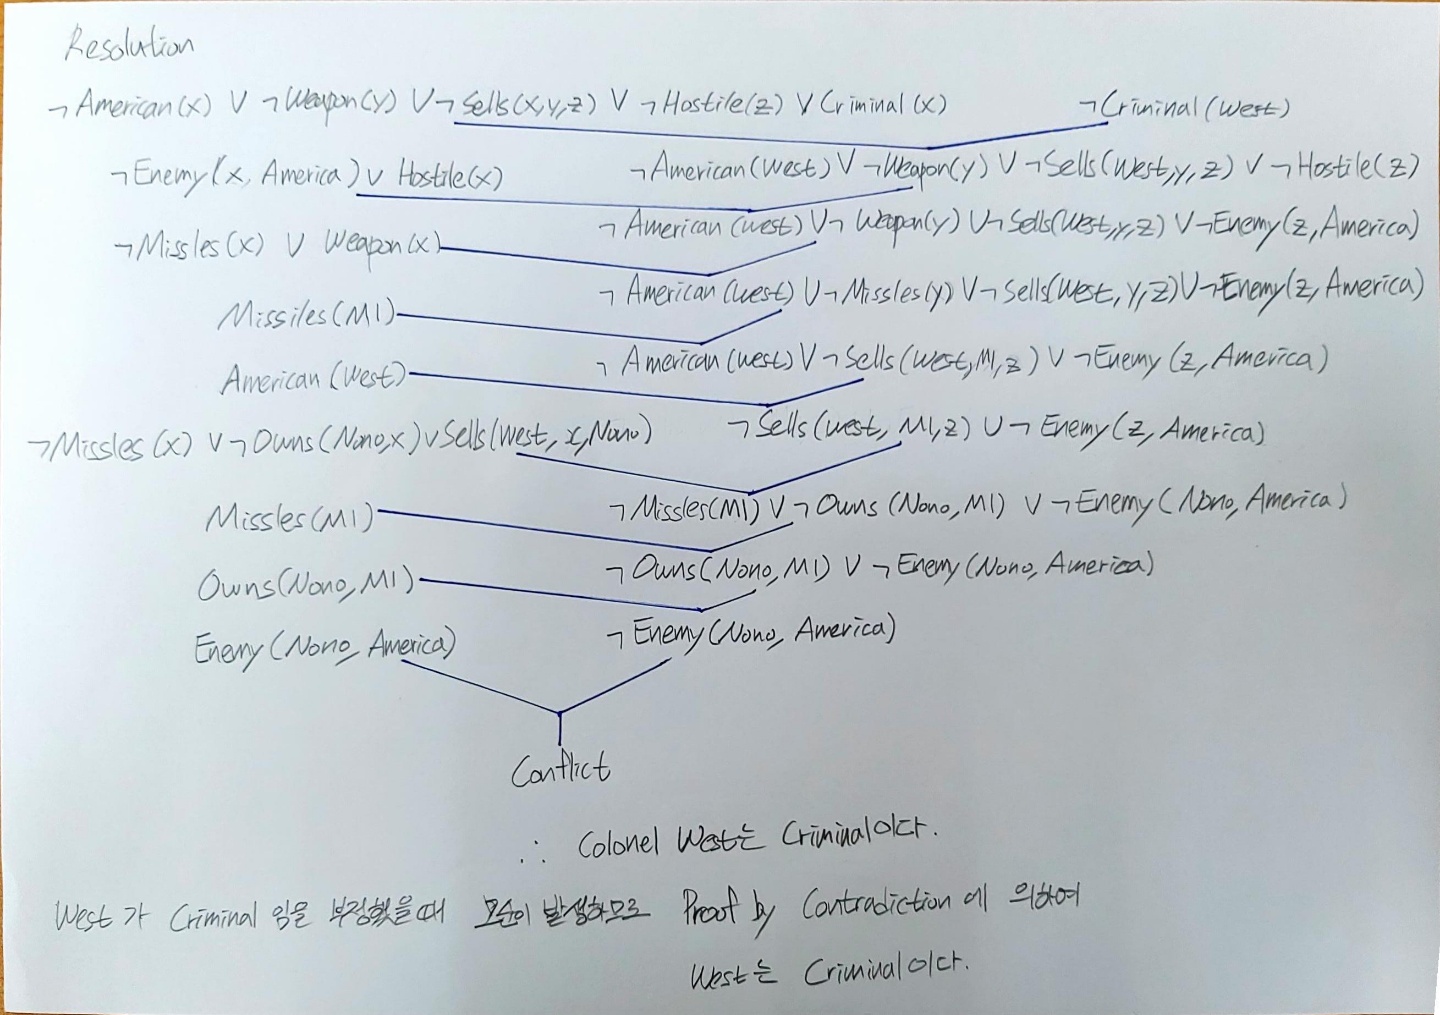 Resolution
¬American(x) ∨ ¬Weapon(y) ∨ ¬Sells(x,y,z) ∨ ¬Hostile(z) ∨ Criminal(x) ¬Criminal(West)
¬Enemy(x, America) ∨ Hostile(x) ¬American(West) ∨ ¬Weapon(y) ∨ ¬Sells(West,y,z) ∨ ¬Hostile(z)
¬American(West) ∨ ¬Weapon(y) ∨ ¬Sells(West,y,z) ∨ ¬Enemy(z, America)
¬Missles(x) ∨ Weapon(x)
¬American(West) ∨ ¬Missles(y) ∨ ¬Sells(West, y, z) ∨ ¬Enemy(z, America)
Missiles(M1)
¬American(West) ∨ ¬Sells(West,M1,z) ∨ ¬Enemy(z, America)
American(West)
¬Missles(x) ∨ ¬Owns(Nono,x) ∨ Sells(West, x, Nono) ¬Sells(West, M1,z) ∨ ¬Enemy(z, America)
Missles(M1) ¬Missles(M1) ∨ ¬Owns(Nono, M1) ∨ ¬Enemy(Nono, America)
Owns(Nono, M1) ¬Owns(Nono, M1) ∨ ¬Enemy(Nono, America)
Enemy(Nono, America) ¬Enemy(Nono, America)
Conflict
∴ Colonel West는 Criminal이다.
West가 Criminal 임을 부정했을때 모순이 발생하므로 Proof by Contradiction에 의하여
West는 Criminal이다.